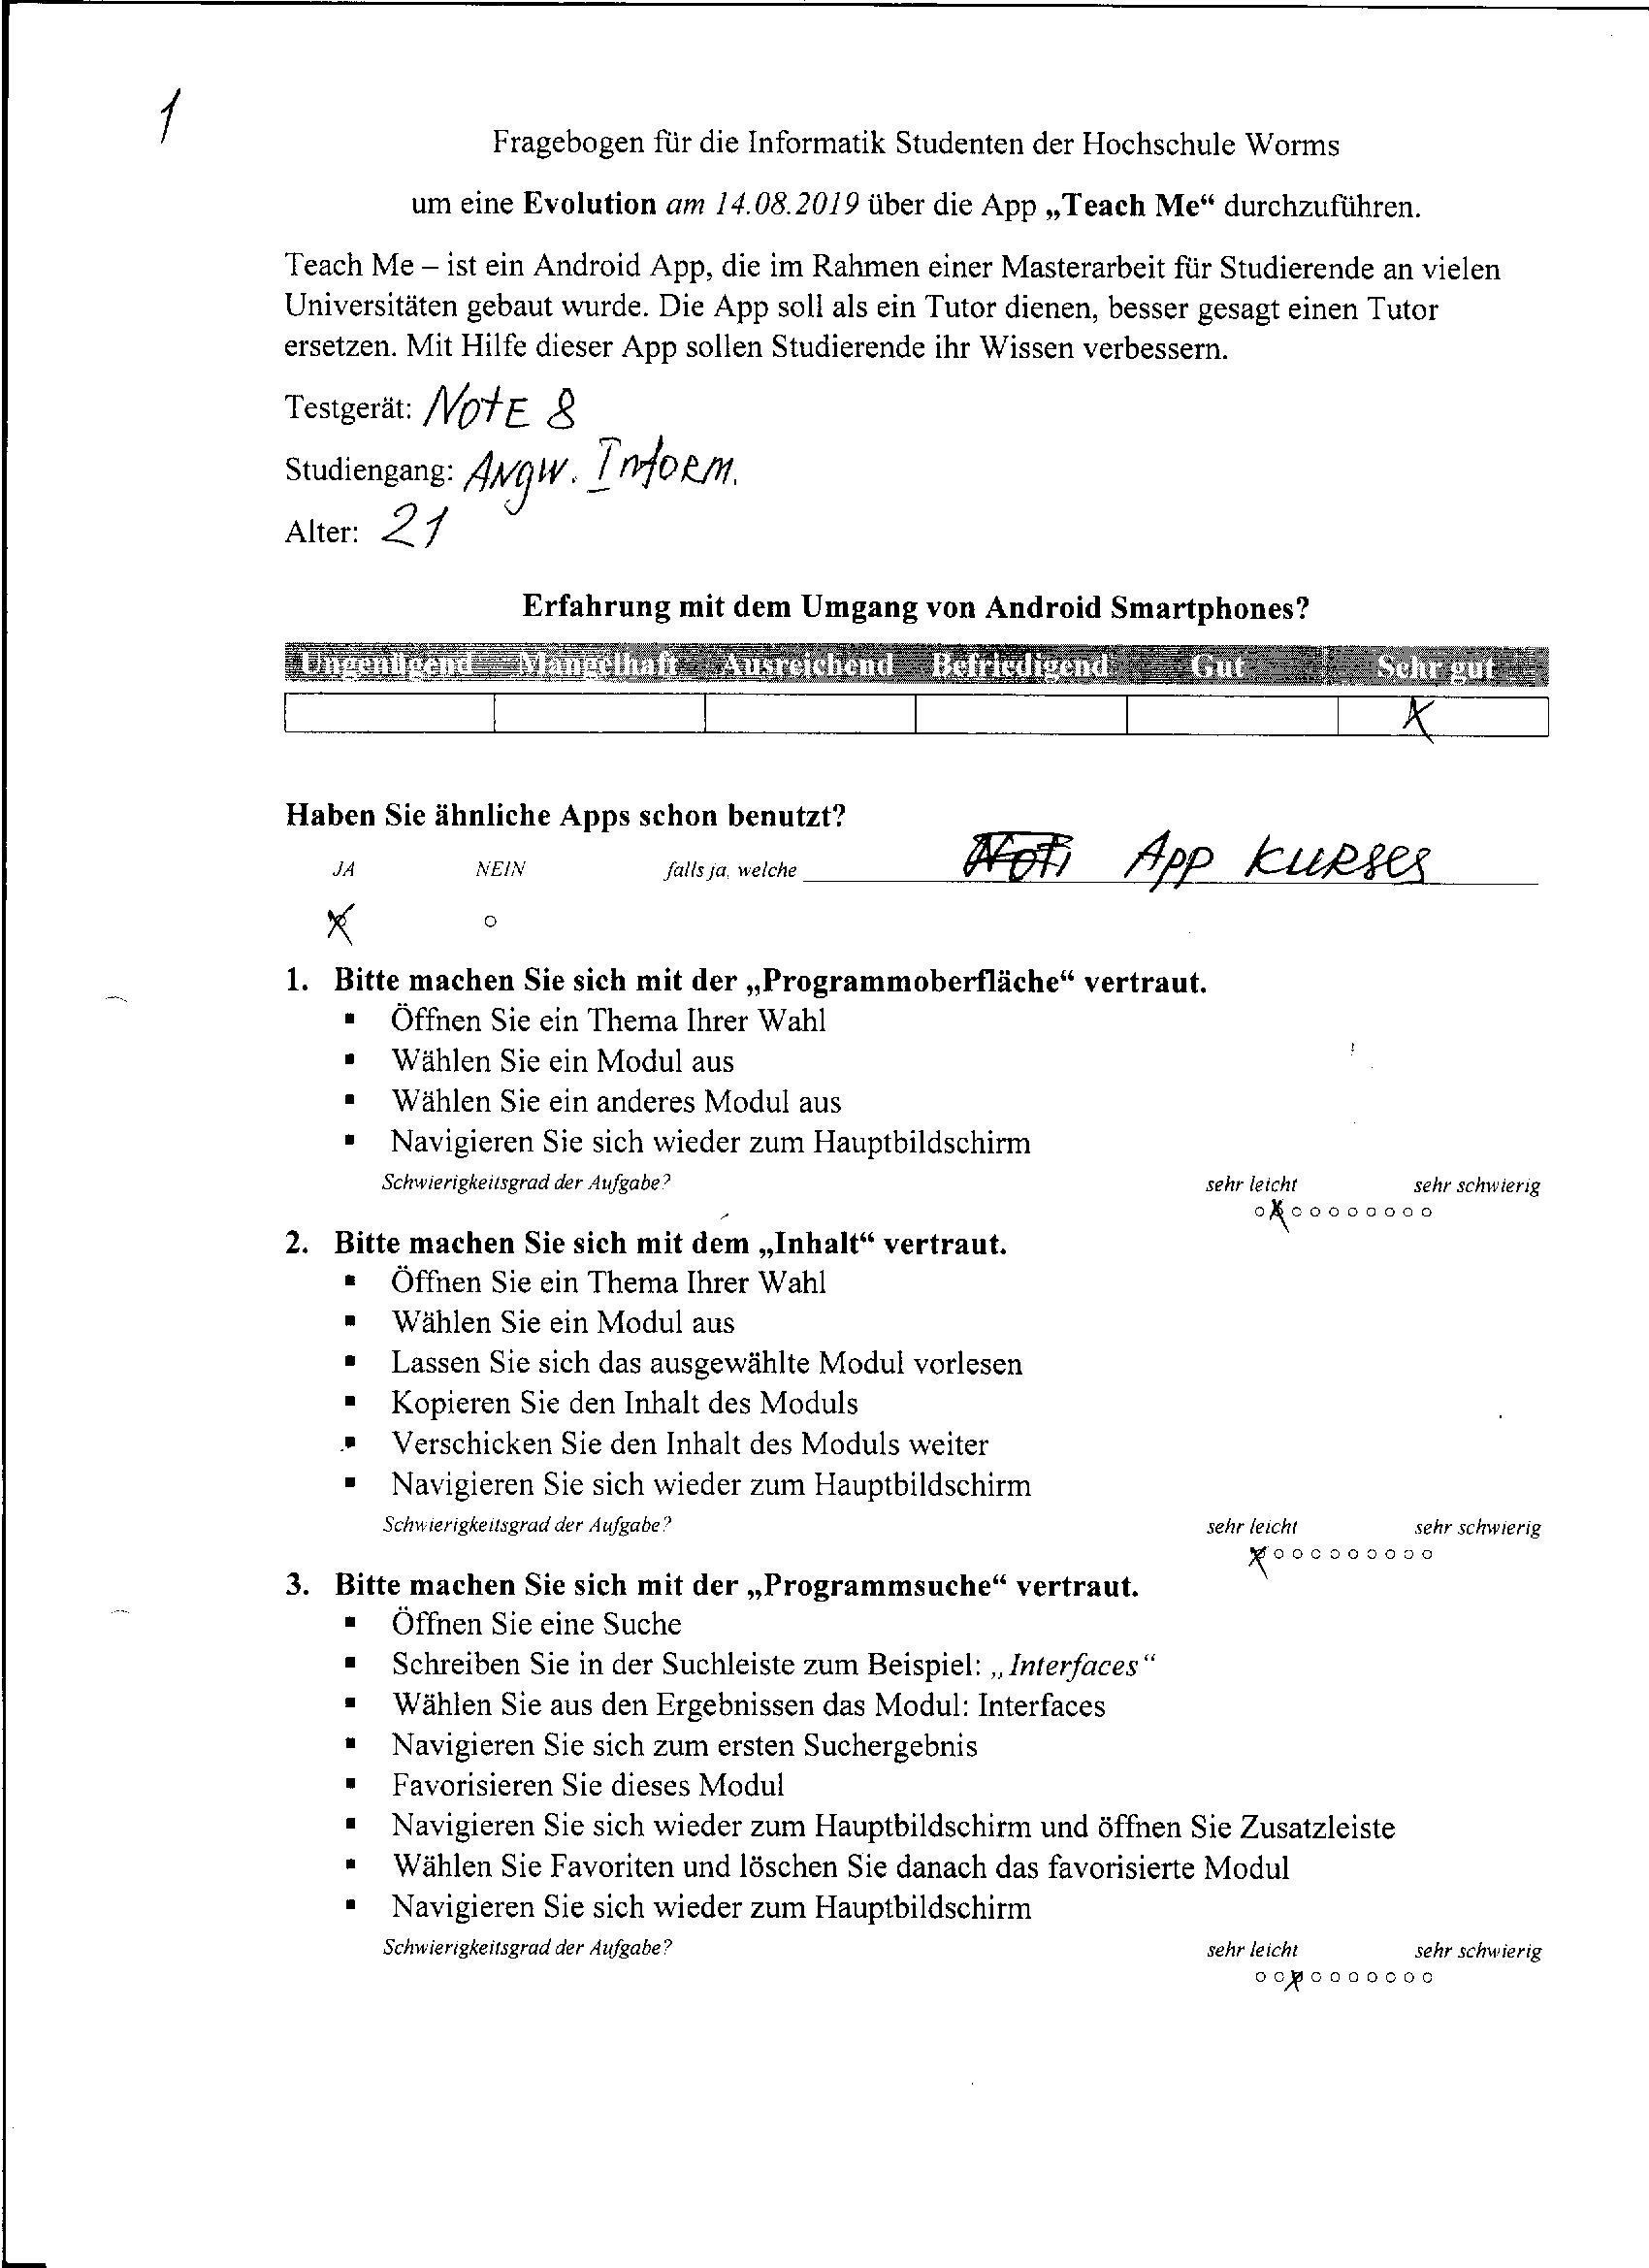 1
Fragebogen für die Informatik Studenten der Hochschule Worms
um eine Evolution am 14.08.2019 über die App „Teach Me“ durchzuführen.
Teach Me – ist ein Android App, die im Rahmen einer Masterarbeit für Studierende an vielen
Universitäten gebaut wurde. Die App soll als ein Tutor dienen, besser gesagt einen Tutor
ersetzen. Mit Hilfe dieser App sollen Studierende ihr Wissen verbessern.
Testgerät: NotE 8
Studiengang: Angw. Inform.
Alter: 21
Erfahrung mit dem Umgang von Android Smartphones?
Ungenügend Mangelhaft Ausreichend Befriedigend Gut Sehr gut
X
Haben Sie ähnliche Apps schon benutzt?
JA NEIN falls ja, welche App KURSES
X ○
1. Bitte machen Sie sich mit der „Programmoberfläche“ vertraut.
▪ Öffnen Sie ein Thema Ihrer Wahl
▪ Wählen Sie ein Modul aus
▪ Wählen Sie ein anderes Modul aus
▪ Navigieren Sie sich wieder zum Hauptbildschirm
Schwierigkeitsgrad der Aufgabe? sehr leicht sehr schwierig
○X○○○○○○○○
2. Bitte machen Sie sich mit dem „Inhalt“ vertraut.
▪ Öffnen Sie ein Thema Ihrer Wahl
▪ Wählen Sie ein Modul aus
▪ Lassen Sie sich das ausgewählte Modul vorlesen
▪ Kopieren Sie den Inhalt des Moduls
▪ Verschicken Sie den Inhalt des Moduls weiter
▪ Navigieren Sie sich wieder zum Hauptbildschirm
Schwierigkeitsgrad der Aufgabe? sehr leicht sehr schwierig
X○○○○○○○○○
3. Bitte machen Sie sich mit der „Programmsuche“ vertraut.
▪ Öffnen Sie eine Suche
▪ Schreiben Sie in der Suchleiste zum Beispiel: „Interfaces“
▪ Wählen Sie aus den Ergebnissen das Modul: Interfaces
▪ Navigieren Sie sich zum ersten Suchergebnis
▪ Favorisieren Sie dieses Modul
▪ Navigieren Sie sich wieder zum Hauptbildschirm und öffnen Sie Zusatzleiste
▪ Wählen Sie Favoriten und löschen Sie danach das favorisierte Modul
▪ Navigieren Sie sich wieder zum Hauptbildschirm
Schwierigkeitsgrad der Aufgabe? sehr leicht sehr schwierig
○○X○○○○○○○